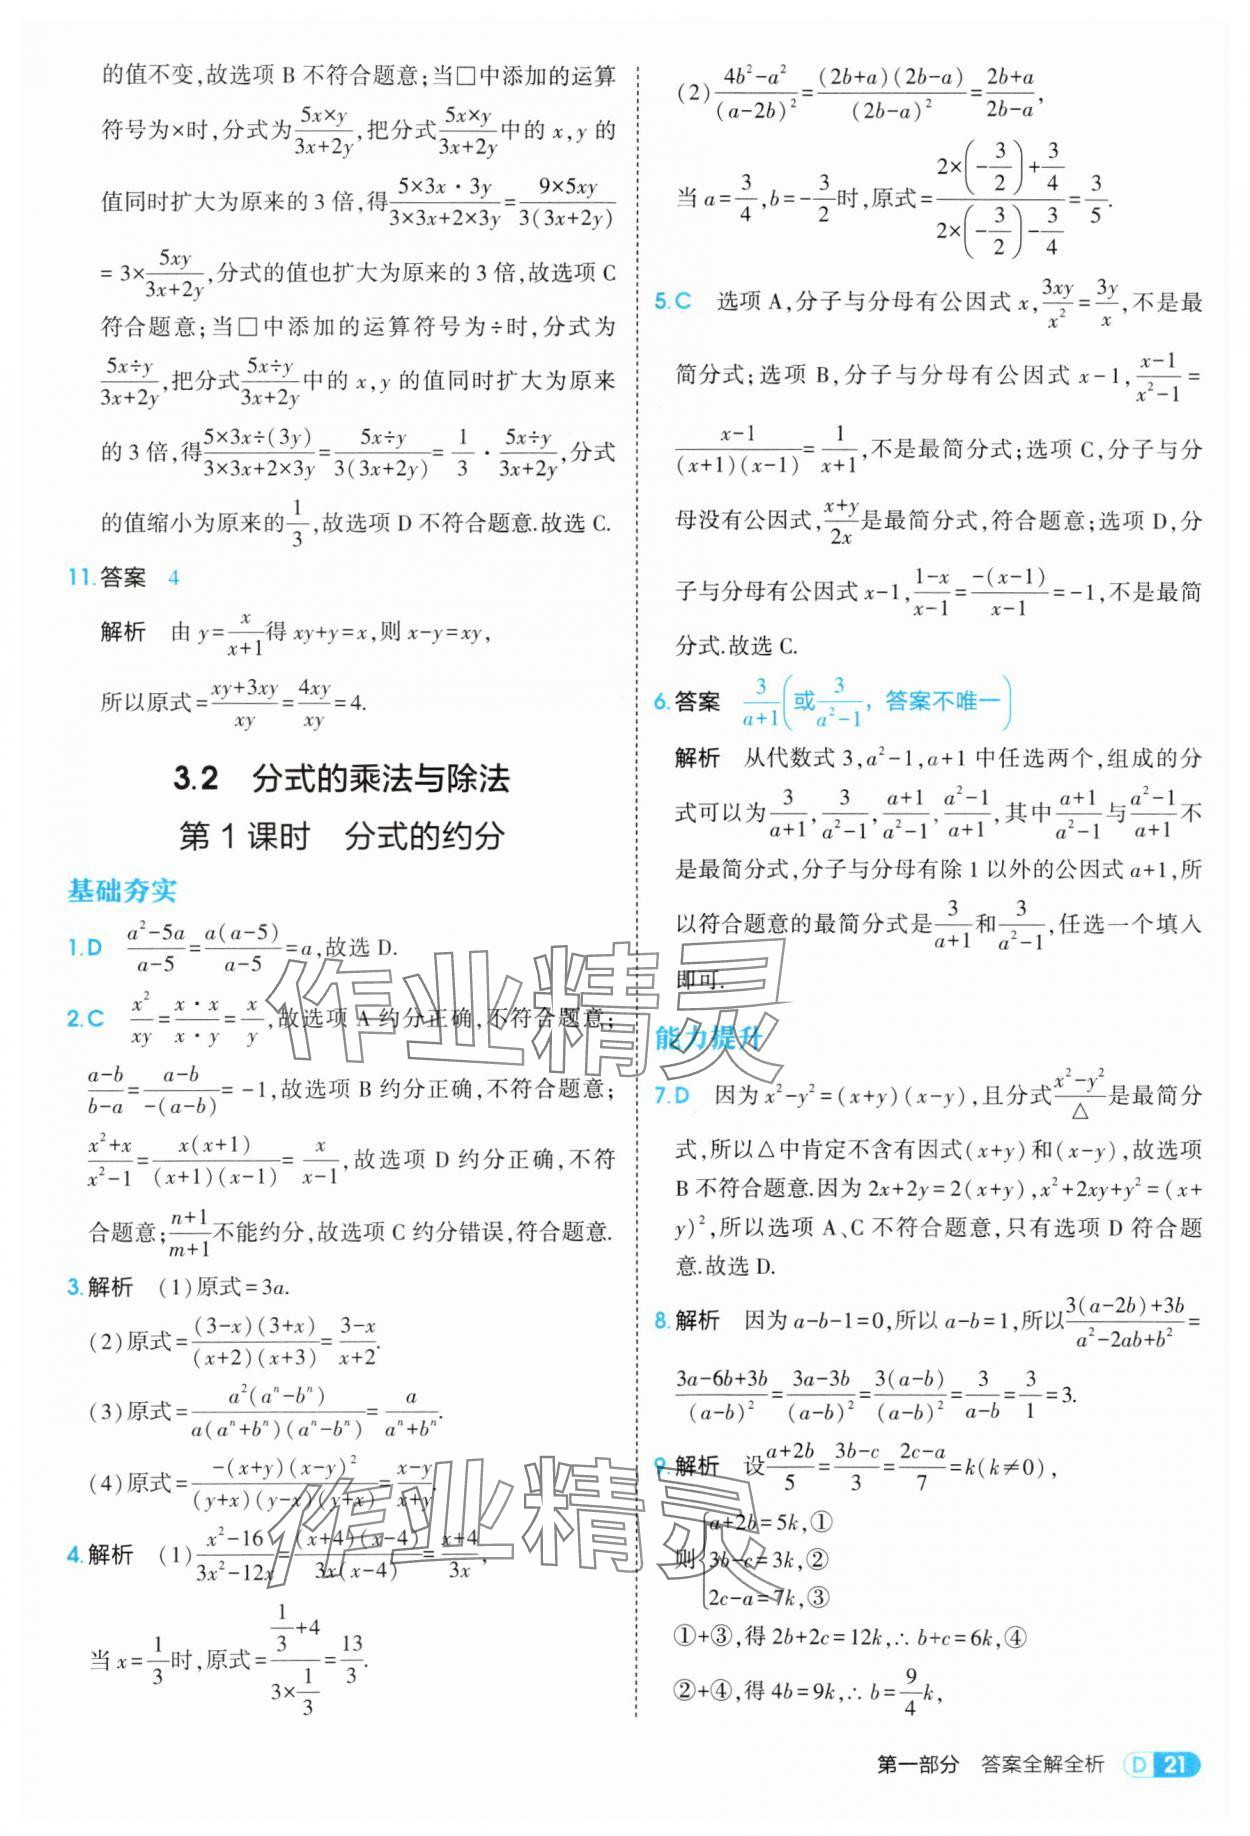 的值不变,故选项 B 不符合题意;当□中添加的运算
符号为×时,分式为\frac{5x×y}{3x+2y},把分式\frac{5x×y}{3x+2y}中的 x,y 的
值同时扩大为原来的 3 倍,得\frac{5×3x·3y}{3×3x+2×3y}=\frac{9×5xy}{3(3x+2y)}
=3×\frac{5xy}{3x+2y},分式的值也扩大为原来的 3 倍,故选项 C
符合题意;当□中添加的运算符号为÷时,分式为
\frac{5x÷y}{3x+2y},把分式\frac{5x÷y}{3x+2y}中的 x,y 的值同时扩大为原来
的 3 倍,得\frac{5×3x÷(3y)}{3×3x+2×3y}=\frac{5x÷y}{3(3x+2y)}=\frac{1}{3}·\frac{5x÷y}{3x+2y},分式
的值缩小为原来的\frac{1}{3},故选项 D 不符合题意.故选 C.
11.答案 4
解析 由 y=\frac{x}{x+1}得 xy+y=x,则 x-y=xy,
所以原式=\frac{xy+3xy}{xy}=\frac{4xy}{xy}=4.
3.2 分式的乘法与除法
第 1 课时 分式的约分
基础夯实
1.D \frac{a^2-5a}{a-5}=\frac{a(a-5)}{a-5}=a,故选 D.
2.C \frac{x^2}{xy}=\frac{x·x}{x·y}=\frac{x}{y},故选项 A 约分正确,不符合题意;
\frac{a-b}{b-a}=\frac{a-b}{-(a-b)}=-1,故选项 B 约分正确,不符合题意;
\frac{x^2+x}{x^2-1}=\frac{x(x+1)}{(x+1)(x-1)}=\frac{x}{x-1},故选项 D 约分正确,不符
合题意;\frac{n+1}{m+1}不能约分,故选项 C 约分错误,符合题意.
3.解析 (1)原式=3a.
(2)原式=\frac{(3-x)(3+x)}{(x+2)(x+3)}=\frac{3-x}{x+2}.
(3)原式=\frac{a^2(a^n-b^n)}{a(a^n+b^n)(a^n-b^n)}=\frac{a}{a^n+b^n}.
(4)原式=\frac{-(x+y)(x-y)^2}{(y+x)(y-x)(y+x)}=\frac{x-y}{x+y}.
4.解析 (1)\frac{x^2-16}{3x^2-12x}=\frac{(x+4)(x-4)}{3x(x-4)}=\frac{x+4}{3x},
当 x=\frac{1}{3}时,原式=\frac{\frac{1}{3}+4}{3×\frac{1}{3}}=\frac{13}{3}.
(2)\frac{4b^2-a^2}{(a-2b)^2}=\frac{(2b+a)(2b-a)}{(2b-a)^2}=\frac{2b+a}{2b-a},
当 a=\frac{3}{4},b=-\frac{3}{2}时,原式=\frac{2×(-\frac{3}{2})+\frac{3}{4}}{2×(-\frac{3}{2})-\frac{3}{4}}=\frac{3}{5}.
5.C 选项 A,分子与分母有公因式 x,\frac{3xy}{x^2}=\frac{3y}{x},不是最
简分式;选项 B,分子与分母有公因式 x-1,\frac{x-1}{x^2-1}=
\frac{x-1}{(x+1)(x-1)}=\frac{1}{x+1},不是最简分式;选项 C,分子与分
母没有公因式,\frac{x+y}{2x}是最简分式,符合题意;选项 D,分
子与分母有公因式 x-1,\frac{1-x}{x-1}=\frac{-(x-1)}{x-1}=-1,不是最简
分式.故选 C.
6.答案 \frac{3}{a+1}(或\frac{3}{a^2-1},答案不唯一)
解析 从代数式 3,a^2-1,a+1 中任选两个,组成的分
式可以为\frac{3}{a+1},\frac{3}{a^2-1},\frac{a+1}{a^2-1},\frac{a^2-1}{a+1},其中\frac{a+1}{a^2-1}与\frac{a^2-1}{a+1}不
是最简分式,分子与分母有除 1 以外的公因式 a+1,所
以符合题意的最简分式是\frac{3}{a+1}和\frac{3}{a^2-1},任选一个填入
即可.
能力提升
7.D 因为 x^2-y^2=(x+y)(x-y),且分式\frac{x^2-y^2}{△}是最简分
式,所以△中肯定不含有因式(x+y)和(x-y),故选项
B 不符合题意.因为 2x+2y=2(x+y),x^2+2xy+y^2=(x+
y)^2,所以选项 A、C 不符合题意,只有选项 D 符合题
意.故选 D.
8.解析 因为 a-b-1=0,所以 a-b=1,所以\frac{3(a-2b)+3b}{a^2-2ab+b^2}=
\frac{3a-6b+3b}{(a-b)^2}=\frac{3a-3b}{(a-b)^2}=\frac{3(a-b)}{(a-b)^2}=\frac{3}{a-b}=\frac{3}{1}=3.
9.解析 设\frac{a+2b}{5}=\frac{3b-c}{3}=\frac{2c-a}{7}=k(k≠0),
则{a+2b=5k,①
3b-c=3k,②
2c-a=7k,③
①+③,得 2b+2c=12k,∴b+c=6k,④
②+④,得 4b=9k,∴b=\frac{9}{4}k,
第一部分 答案全解全析 D 21
作业精灵
作业精灵